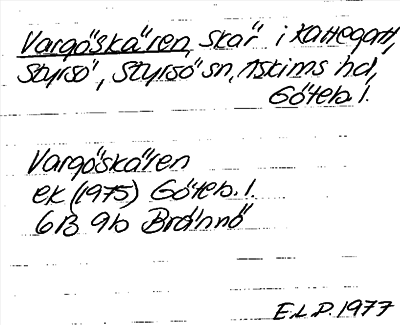 Vargöskären, skär i Kattegatt,
Styrsö, Styrsö sn, Askims hd,
Göteb. l.
Vargöskären
ek (1975) Göteb. l.
6B 9b Brännö
E.L.P. 1977